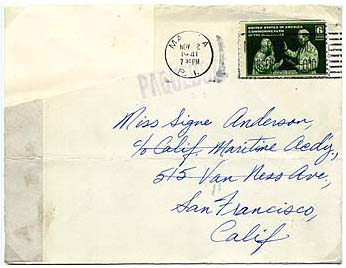 MANILA
NOV 2
1941
7 PM
P.I.
PAQUEBOT
UNITED STATES OF AMERICA
COMMONWEALTH
OF THE PHILIPPINES
6
Miss Signe Anderson,
c/o Calif. Maritine Acdy.,
515 Van Ness Ave.,
San Francisco,
Calif